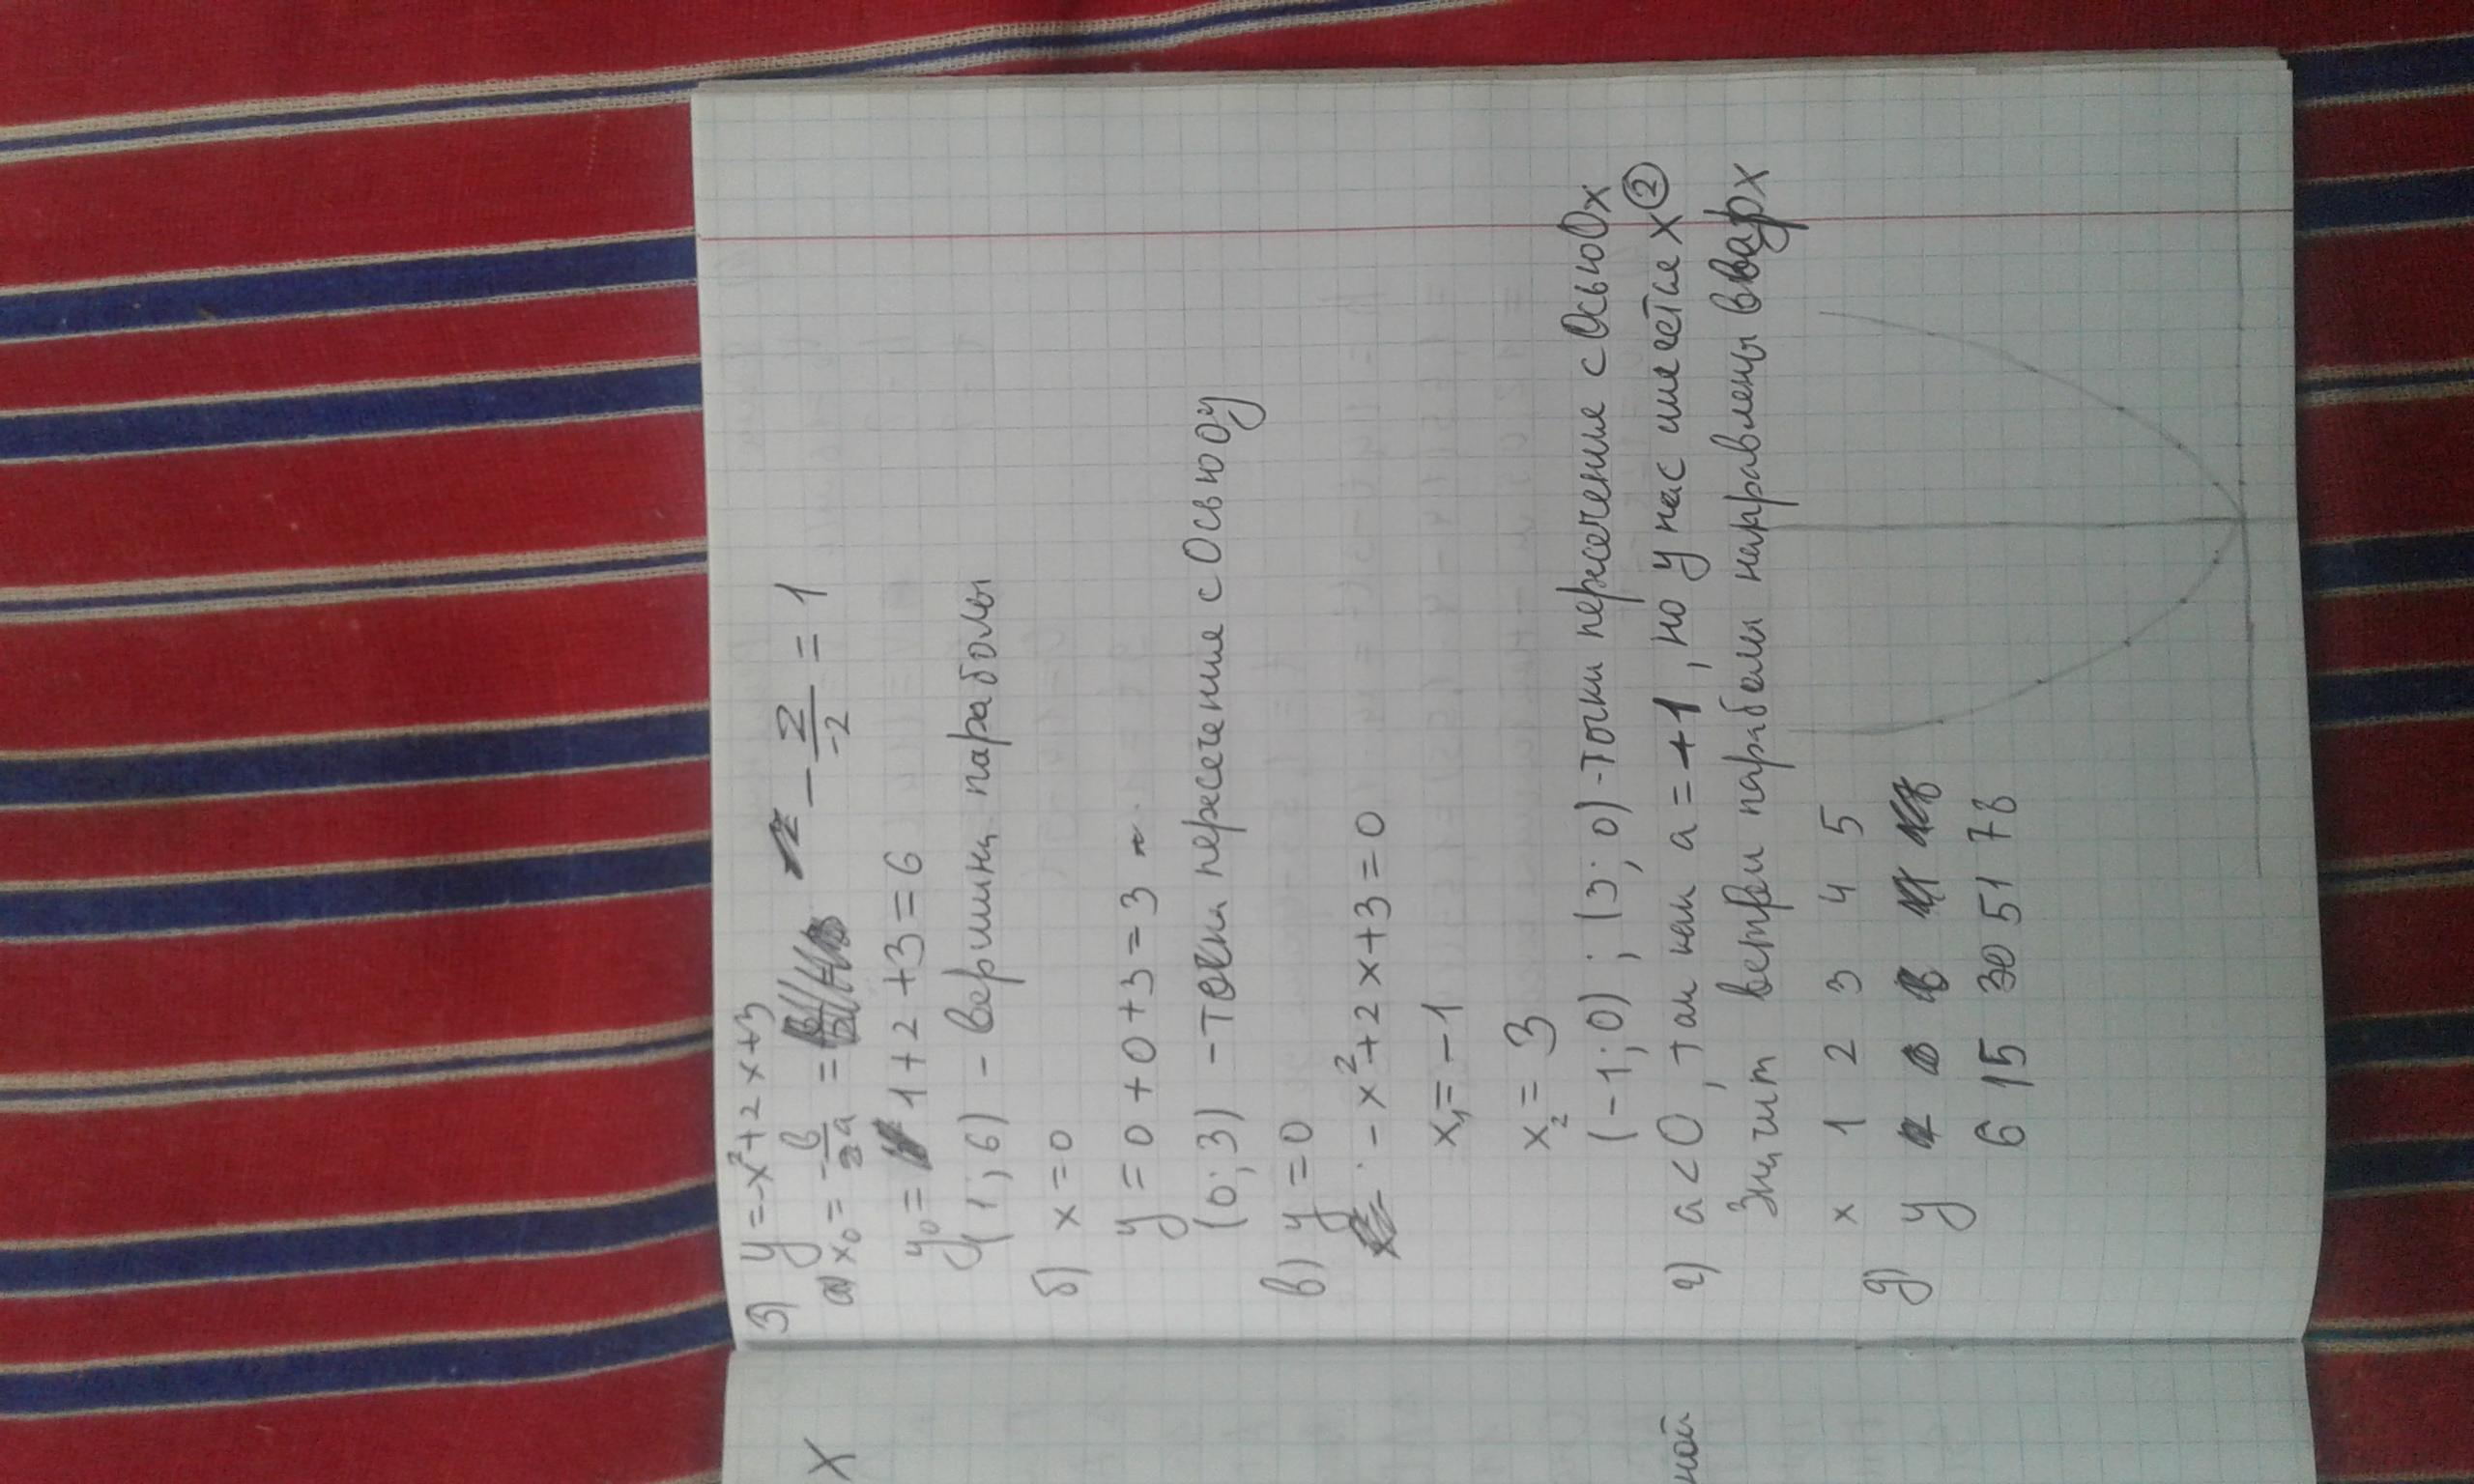 3) y=-x²+2x+3
а) x₀=-в/2a= -2/-2=1
y₀= 1+2+3=6
(1;6) - вершина параболы
б) x=0
y=0+0+3=3
(0;3) -точка пересечение с Осью Oy
в) y=0
-x²+2x+3=0
x₁=-1
x₂=3
(-1;0) ; (3;0) -точки пересечение с Осью Ox
г) a<0, так как a=+1, но у нас имеется x²
Значит ветви параболы направлены вверх
x 1 2 3 4 5
д) y
6 15 30 51 78
х
ной